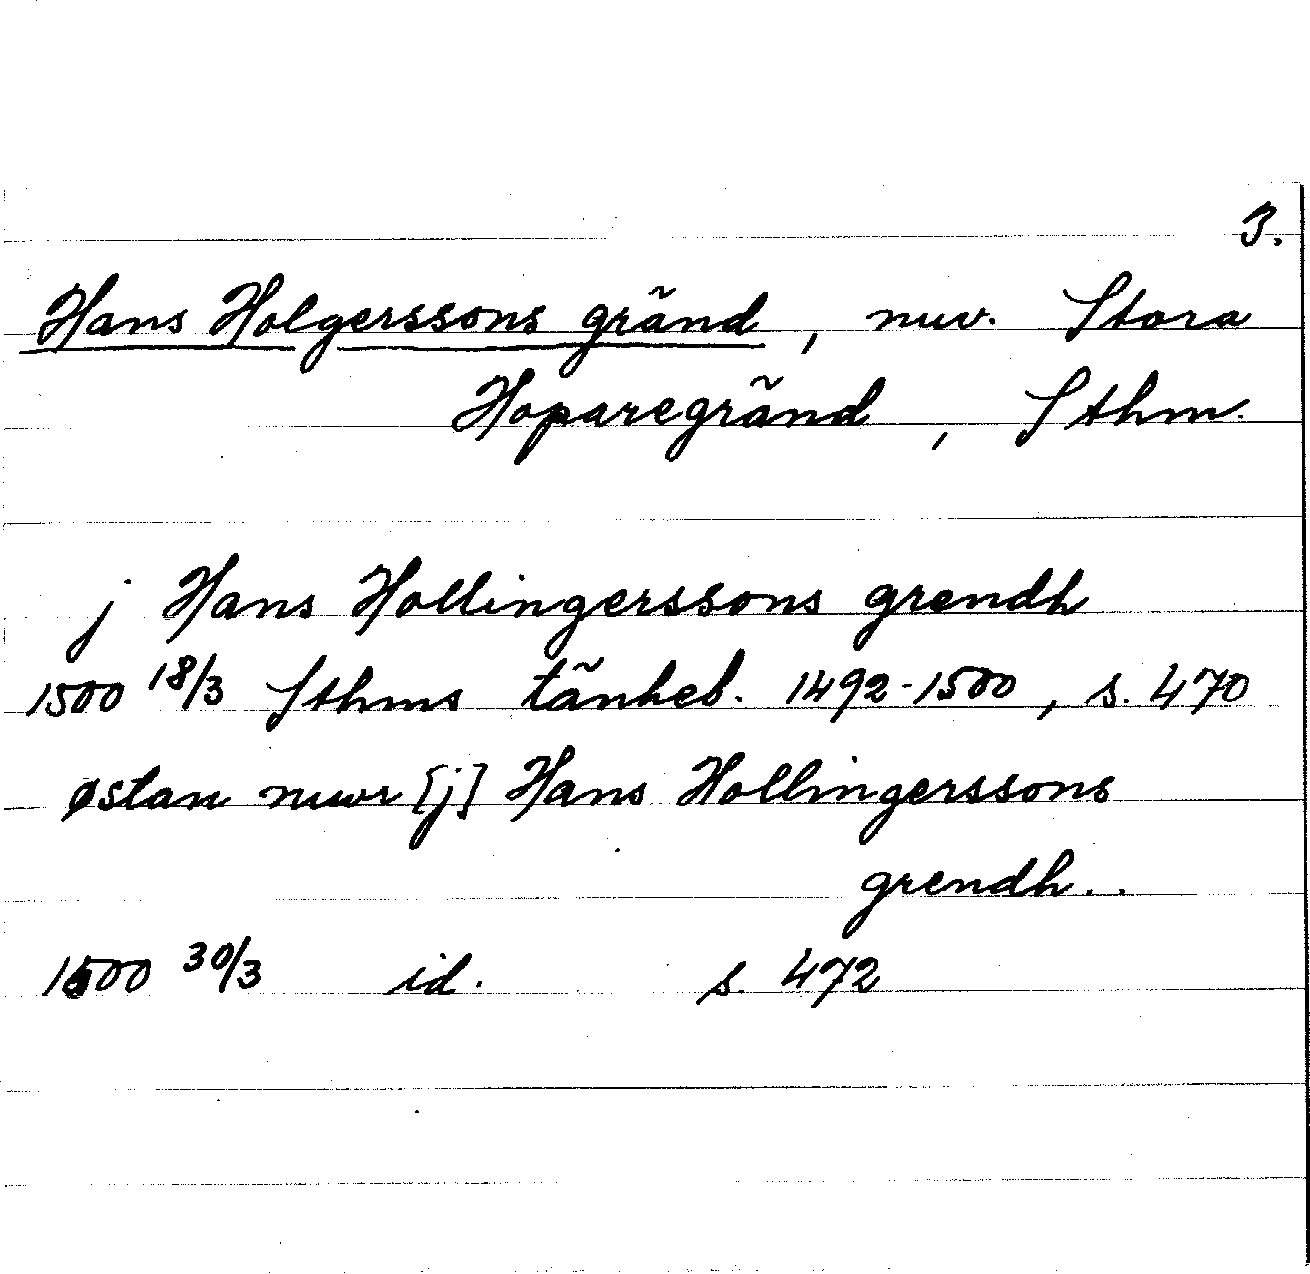 3.
Hans Holgerssons gränd, nuv. Stora
Hoparegränd, Sthm.
j Hans Hollingerssons grendh
1500 18/3 Sthms tänkeb. 1492-1500, s. 470
østan mwr [j] Hans Hollingerssons
grendh..
1500 30/3 id. s. 472